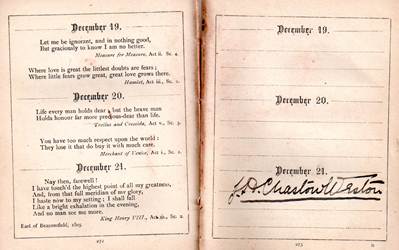 December 19.
Let me be ignorant, and in nothing good,
But graciously to know I am no better.
Measure for Measure, Act ii. Sc. 4.
Where love is great the littlest doubts are fears;
Where little fears grow great, great love grows there.
Hamlet, Act iii., Sc. 2.
December 20.
Life every man holds dear; but the brave man
Holds honour far more precious-dear than life.
Troilus and Cressida, Act v., Sc. 3.
You have too much respect upon the world:
They lose it that do buy it with much care.
Merchant of Venice, Act i., Sc. 1.
December 21.
Nay then, farewell!
I have touch'd the highest point of all my greatness,
And, from that full meridian of my glory,
I haste now to my setting; I shall fall
Like a bright exhalation in the evening,
And no man see me more.
King Henry VIII., Act iii., Sc. 2.
Earl of Beaconsfield, 1805.
272
December 19.
December 20.
December 21.
273